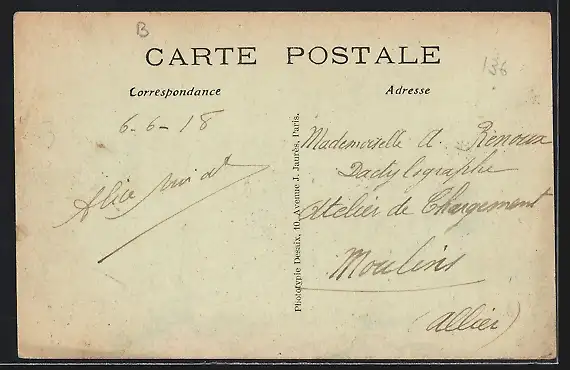 B
136
CARTE POSTALE
Correspondance
Adresse
6-6-18
Alice
Mademoiselle A. Renoux
Dactylographe
Atelier de Chargement
Moulins
(Allier)
Phototypie Desaix, 10, Avenue J. Jaurès, Paris.